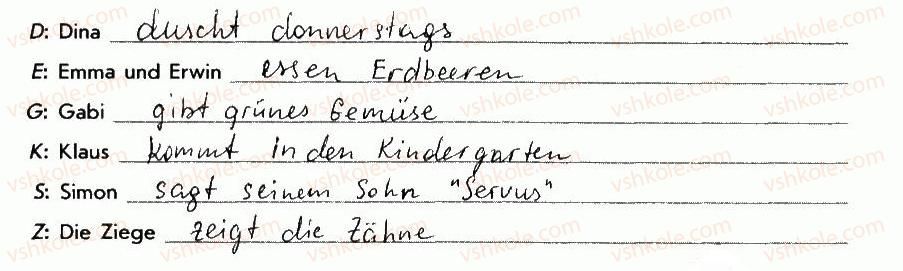 D: Dina duscht donnerstags
E: Emma und Erwin essen Erdbeeren
G: Gabi gibt grünes Gemüse
K: Klaus kommt in den Kindergarten
S: Simon sagt seinem Sohn "Servus"
Z: Die Ziege zeigt die Zähne